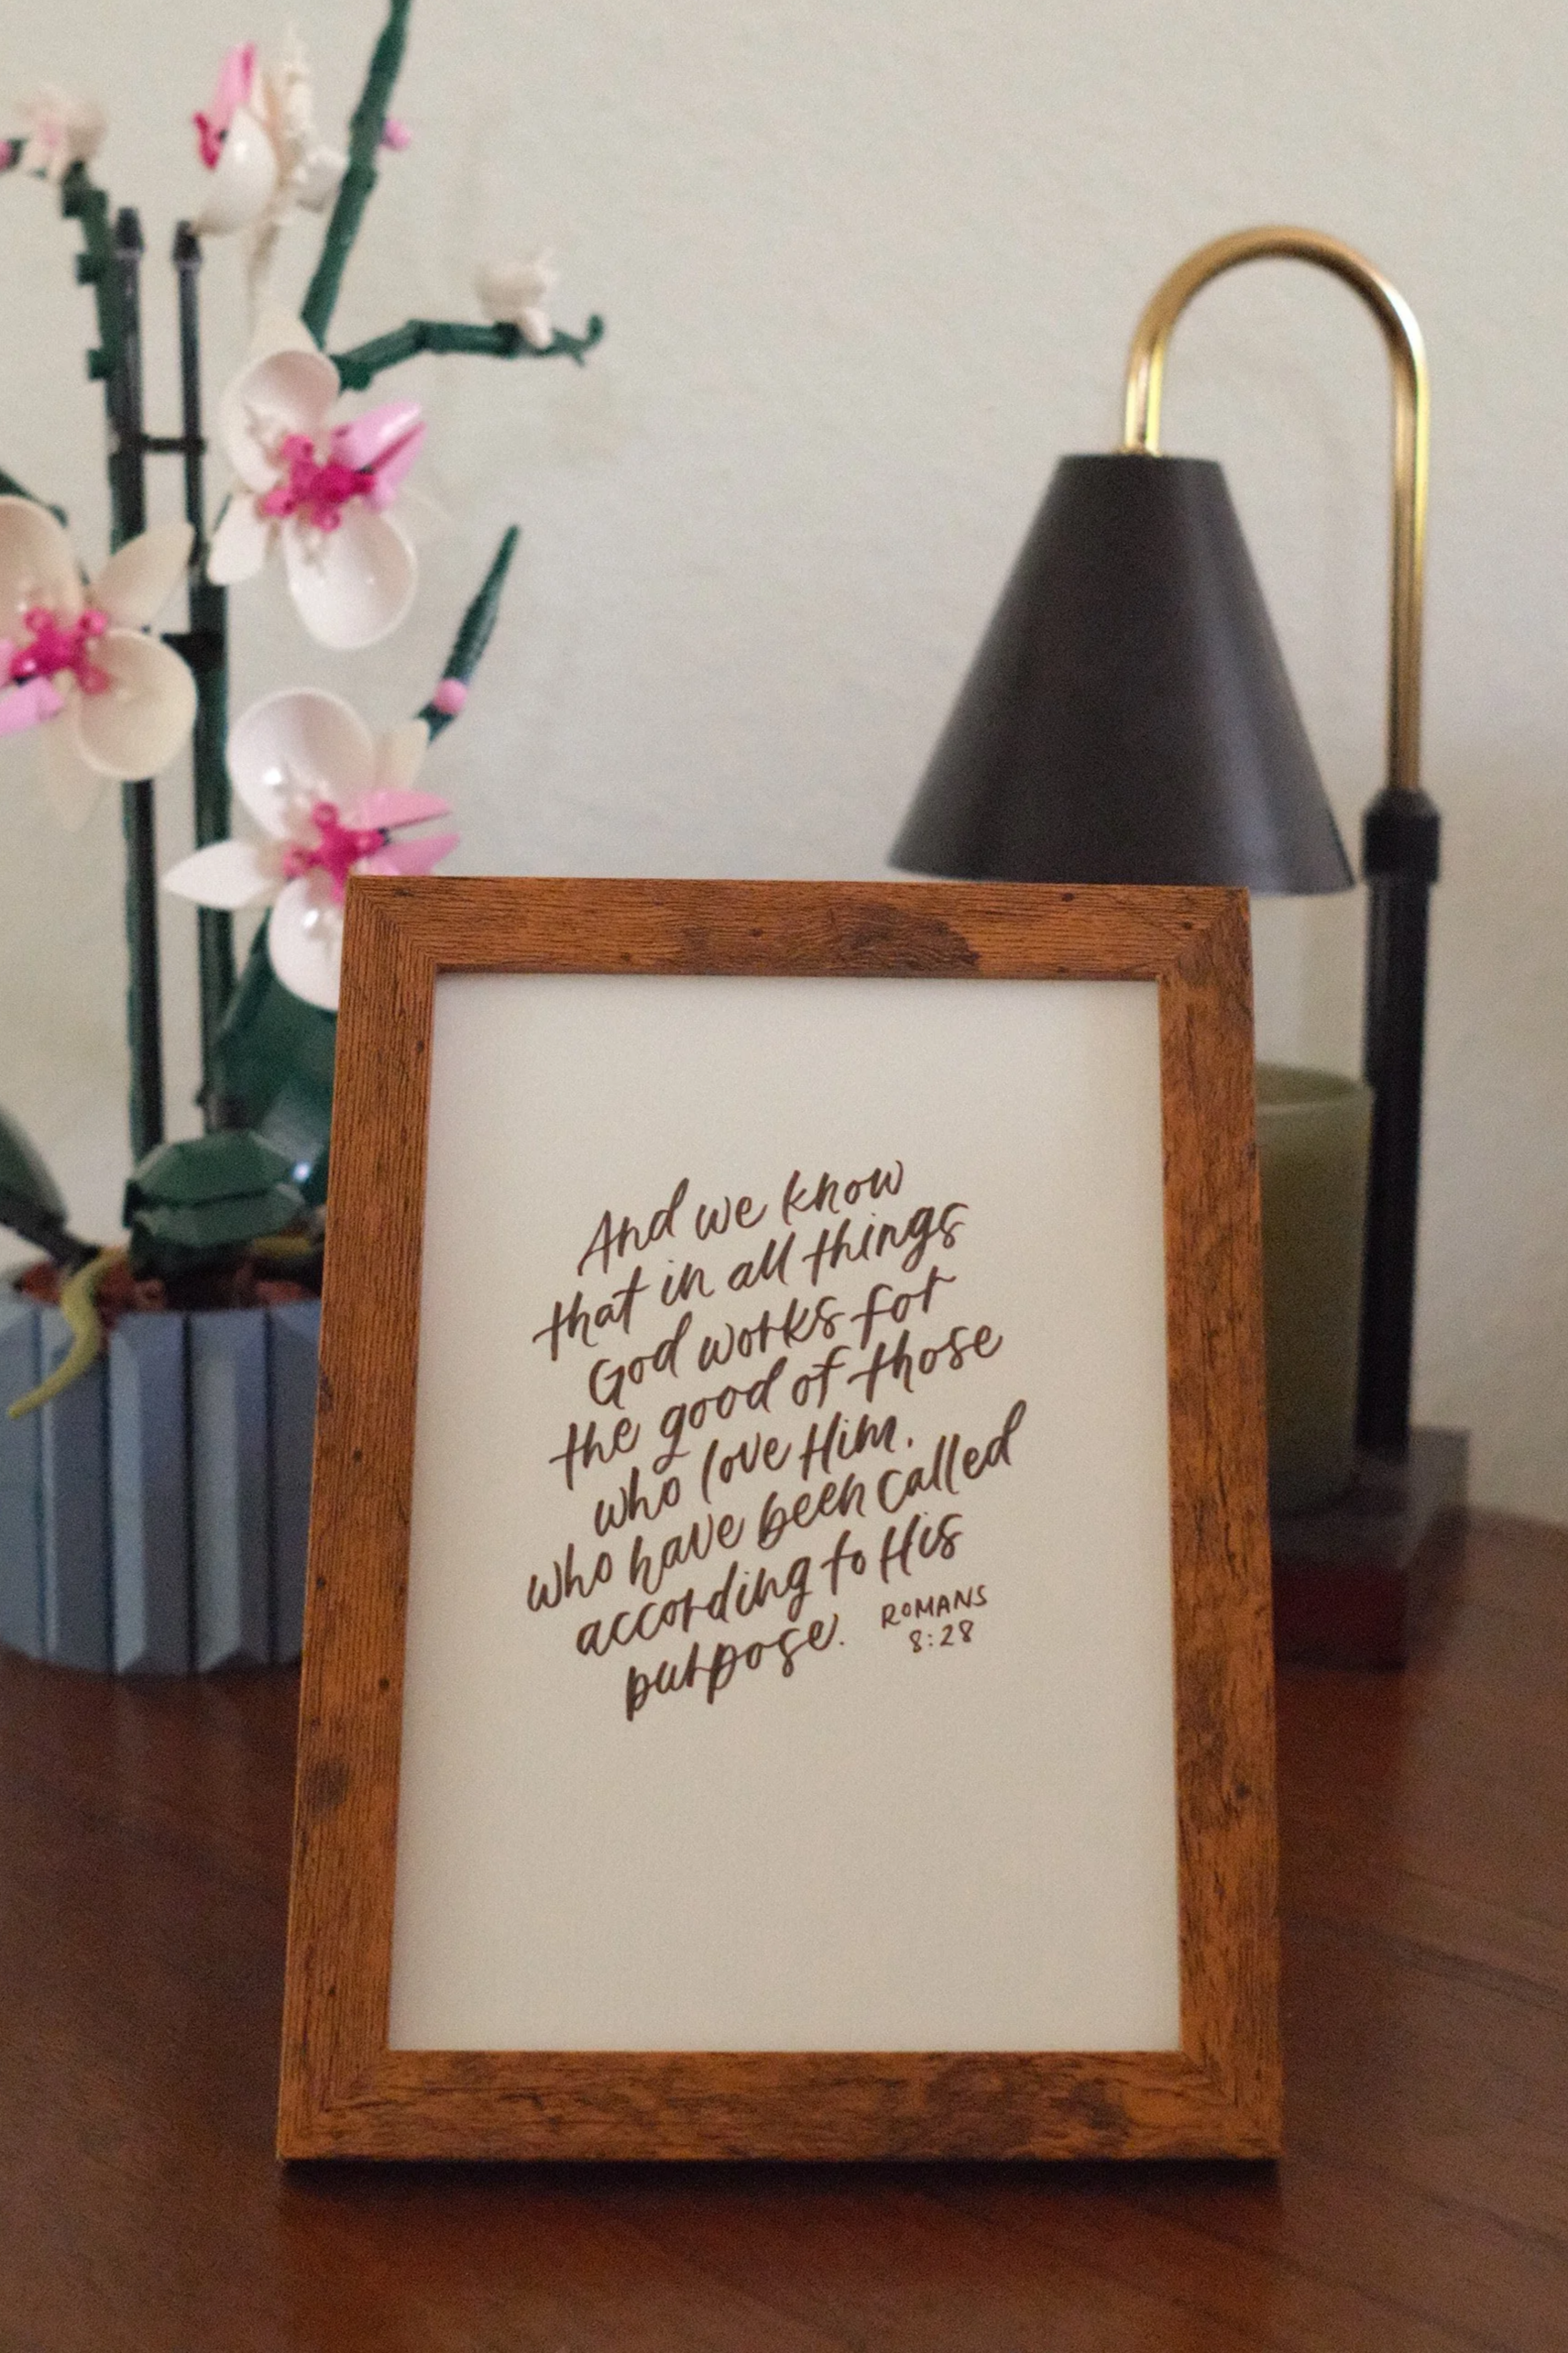 And we know
that in all things
God works for
the good of those
who love Him.
who have been called
according to His
purpose. ROMANS
8:28